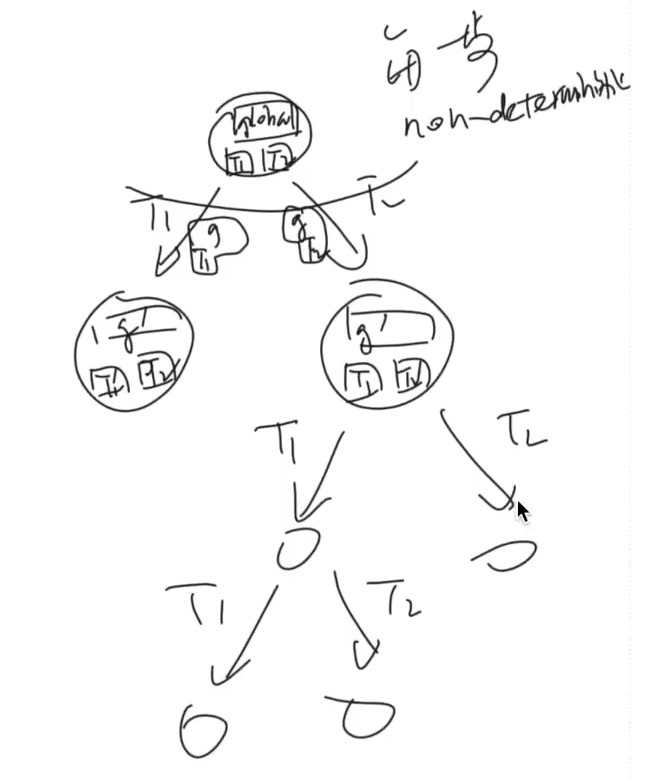 non-deterministic
global
T1 T2
T1 T2
g g
T1 T2
g' g'
T1' T2 T1 T2'
T1 T2
T1 T2